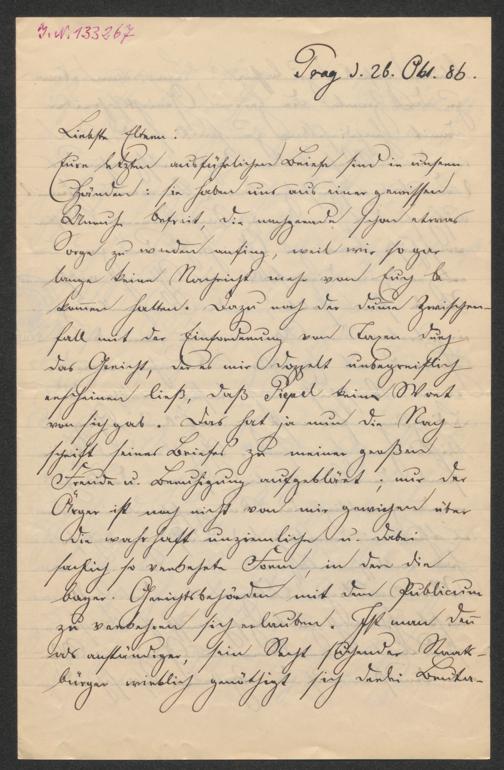 J.N. 133267
Prag d. 26. Okt. 86.
Liebste Eltern!
Eure letzten ausführlichen Briefe sind in unsern
Händen: sie haben uns aus einer gewissen
Unruhe befreit, die nachgerade schon etwas
Sorge zu werden anfing, weil wir so gar
lange keine Nachricht mehr von Euch be-
kom̅en hatten. Dazu noch der dum̅e Zwischen-
fall mit der Einforderung von Taxen durch
das Gericht, der es mir doppelt unbegreiflich
erscheinen ließ, daß Pepel keine Wort
von sich gab. Das hat ja nun die Nach-
schrift seines Briefes zu meiner großen
Freude u. Beruhigung aufgeklärt; nur der
Ärger ist noch nicht von mir gewichen über
die wahrhaft unziemliche u. dabei
sachlich so verkehrte Form, in der die
bayer. Gerichtsbehörden mit dem Publicum
zu verkehren sich erlauben. Ist man den̅
als anständiger, sein Recht suchender Staats-
bürger wirklich genöthigt sich derlei Bruta-